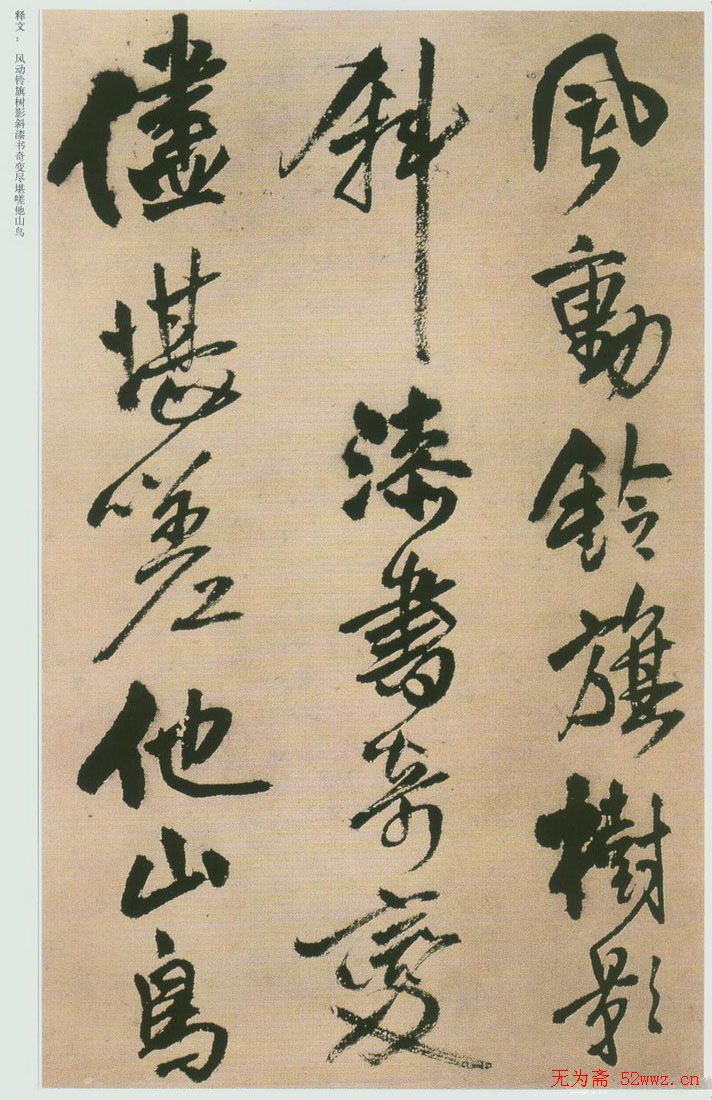 風動鈴旗樹影
斜漆書奇變
儘堪嗟他山鳥
释文：风动铃旗树影斜漆书奇变尽堪嗟他山鸟
无为斋 52wwz.cn